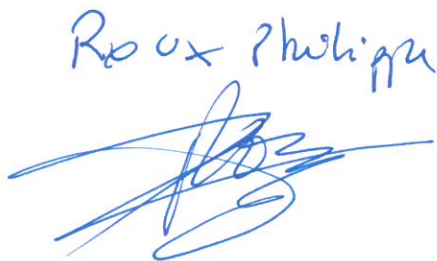 Roux Philippe